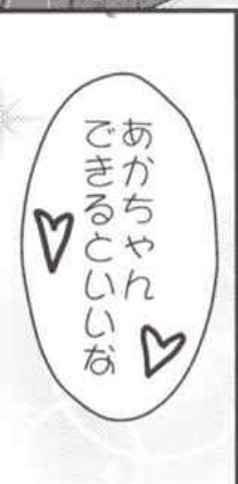 あかちゃん
できるといいな